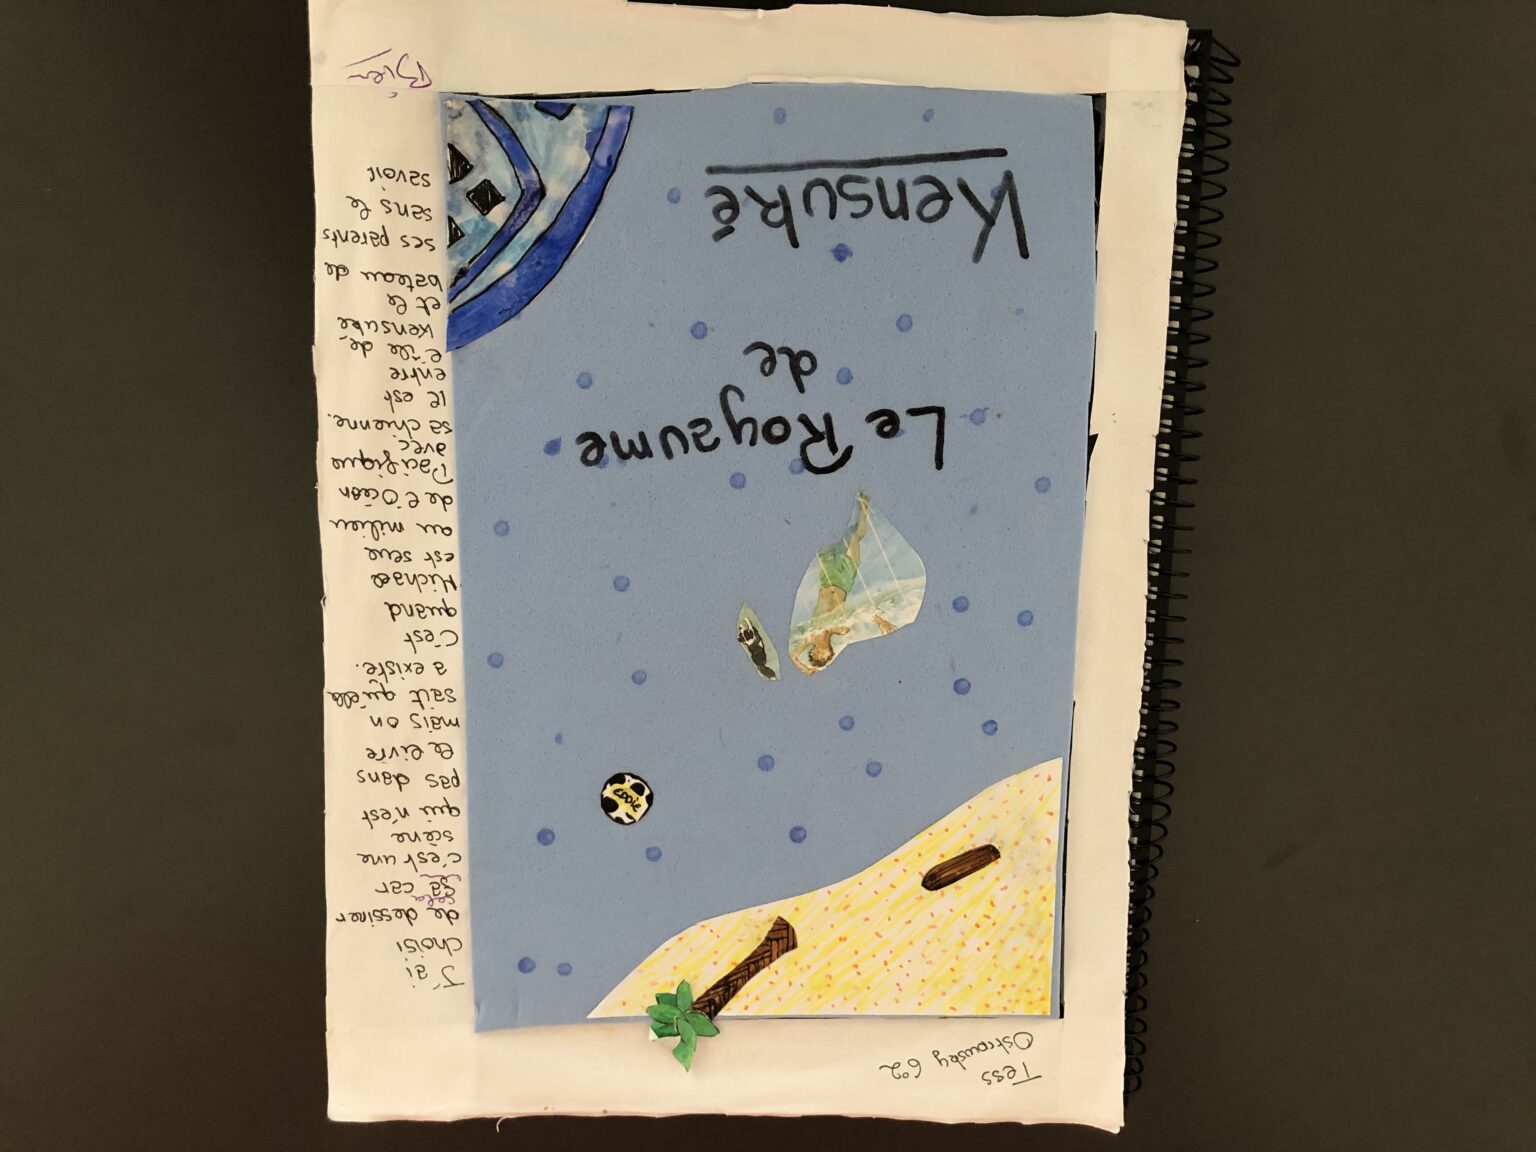 Tess
Ostrowsky 6°2
J'ai
choisi
de dessiner
cela
ça car
c'est une
scène
qui n'est
pas dans
le livre
mais on
sait qu'elle
a existé.
C'est
quand
Michael
est seul
au milieu
de l'Océan
Pacifique
avec
sa chienne.
Il est
entre
l'île de
Kensuké
et le
bateau de
ses parents
sans le
savoir
Bien
cooie
Le Royaume
de
Kensuké